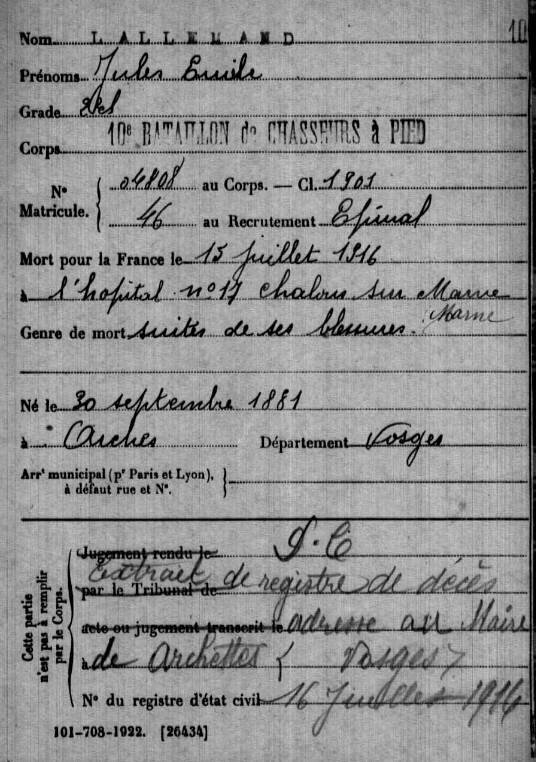 Nom LALLEMAND 10
Prénoms Jules Emile
Grade 2e cl
Corps 10e BATAILLON de CHASSEURS à PIED
N° Matricule. { 04808 au Corps. — Cl. 1901
46 au Recrutement Epinal
Mort pour la France le 15 juillet 1916
à l'hopital n°17 chalons sur Marne
Marne
Genre de mort suites de ses blessures.
Né le 30 septembre 1881
à Arches Département Vosges
Arrt municipal (pr Paris et Lyon), à défaut rue et N°. }
Cette partie n'est pas à remplir par le Corps.
Jugement rendu le
par le Tribunal de
Extrait de registre de décès
acte ou jugement transcrit le adresse au Maire
à de Archettes ( Vosges )
N° du registre d'état civil 16 Juillet 1916
101-708-1922. [26434]